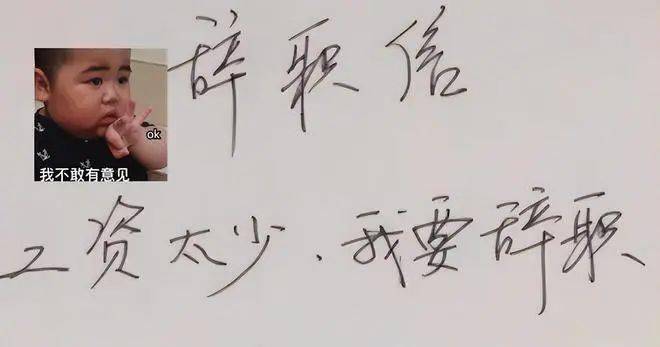 辞职信
ok
我不敢有意见
工资太少、我要辞职